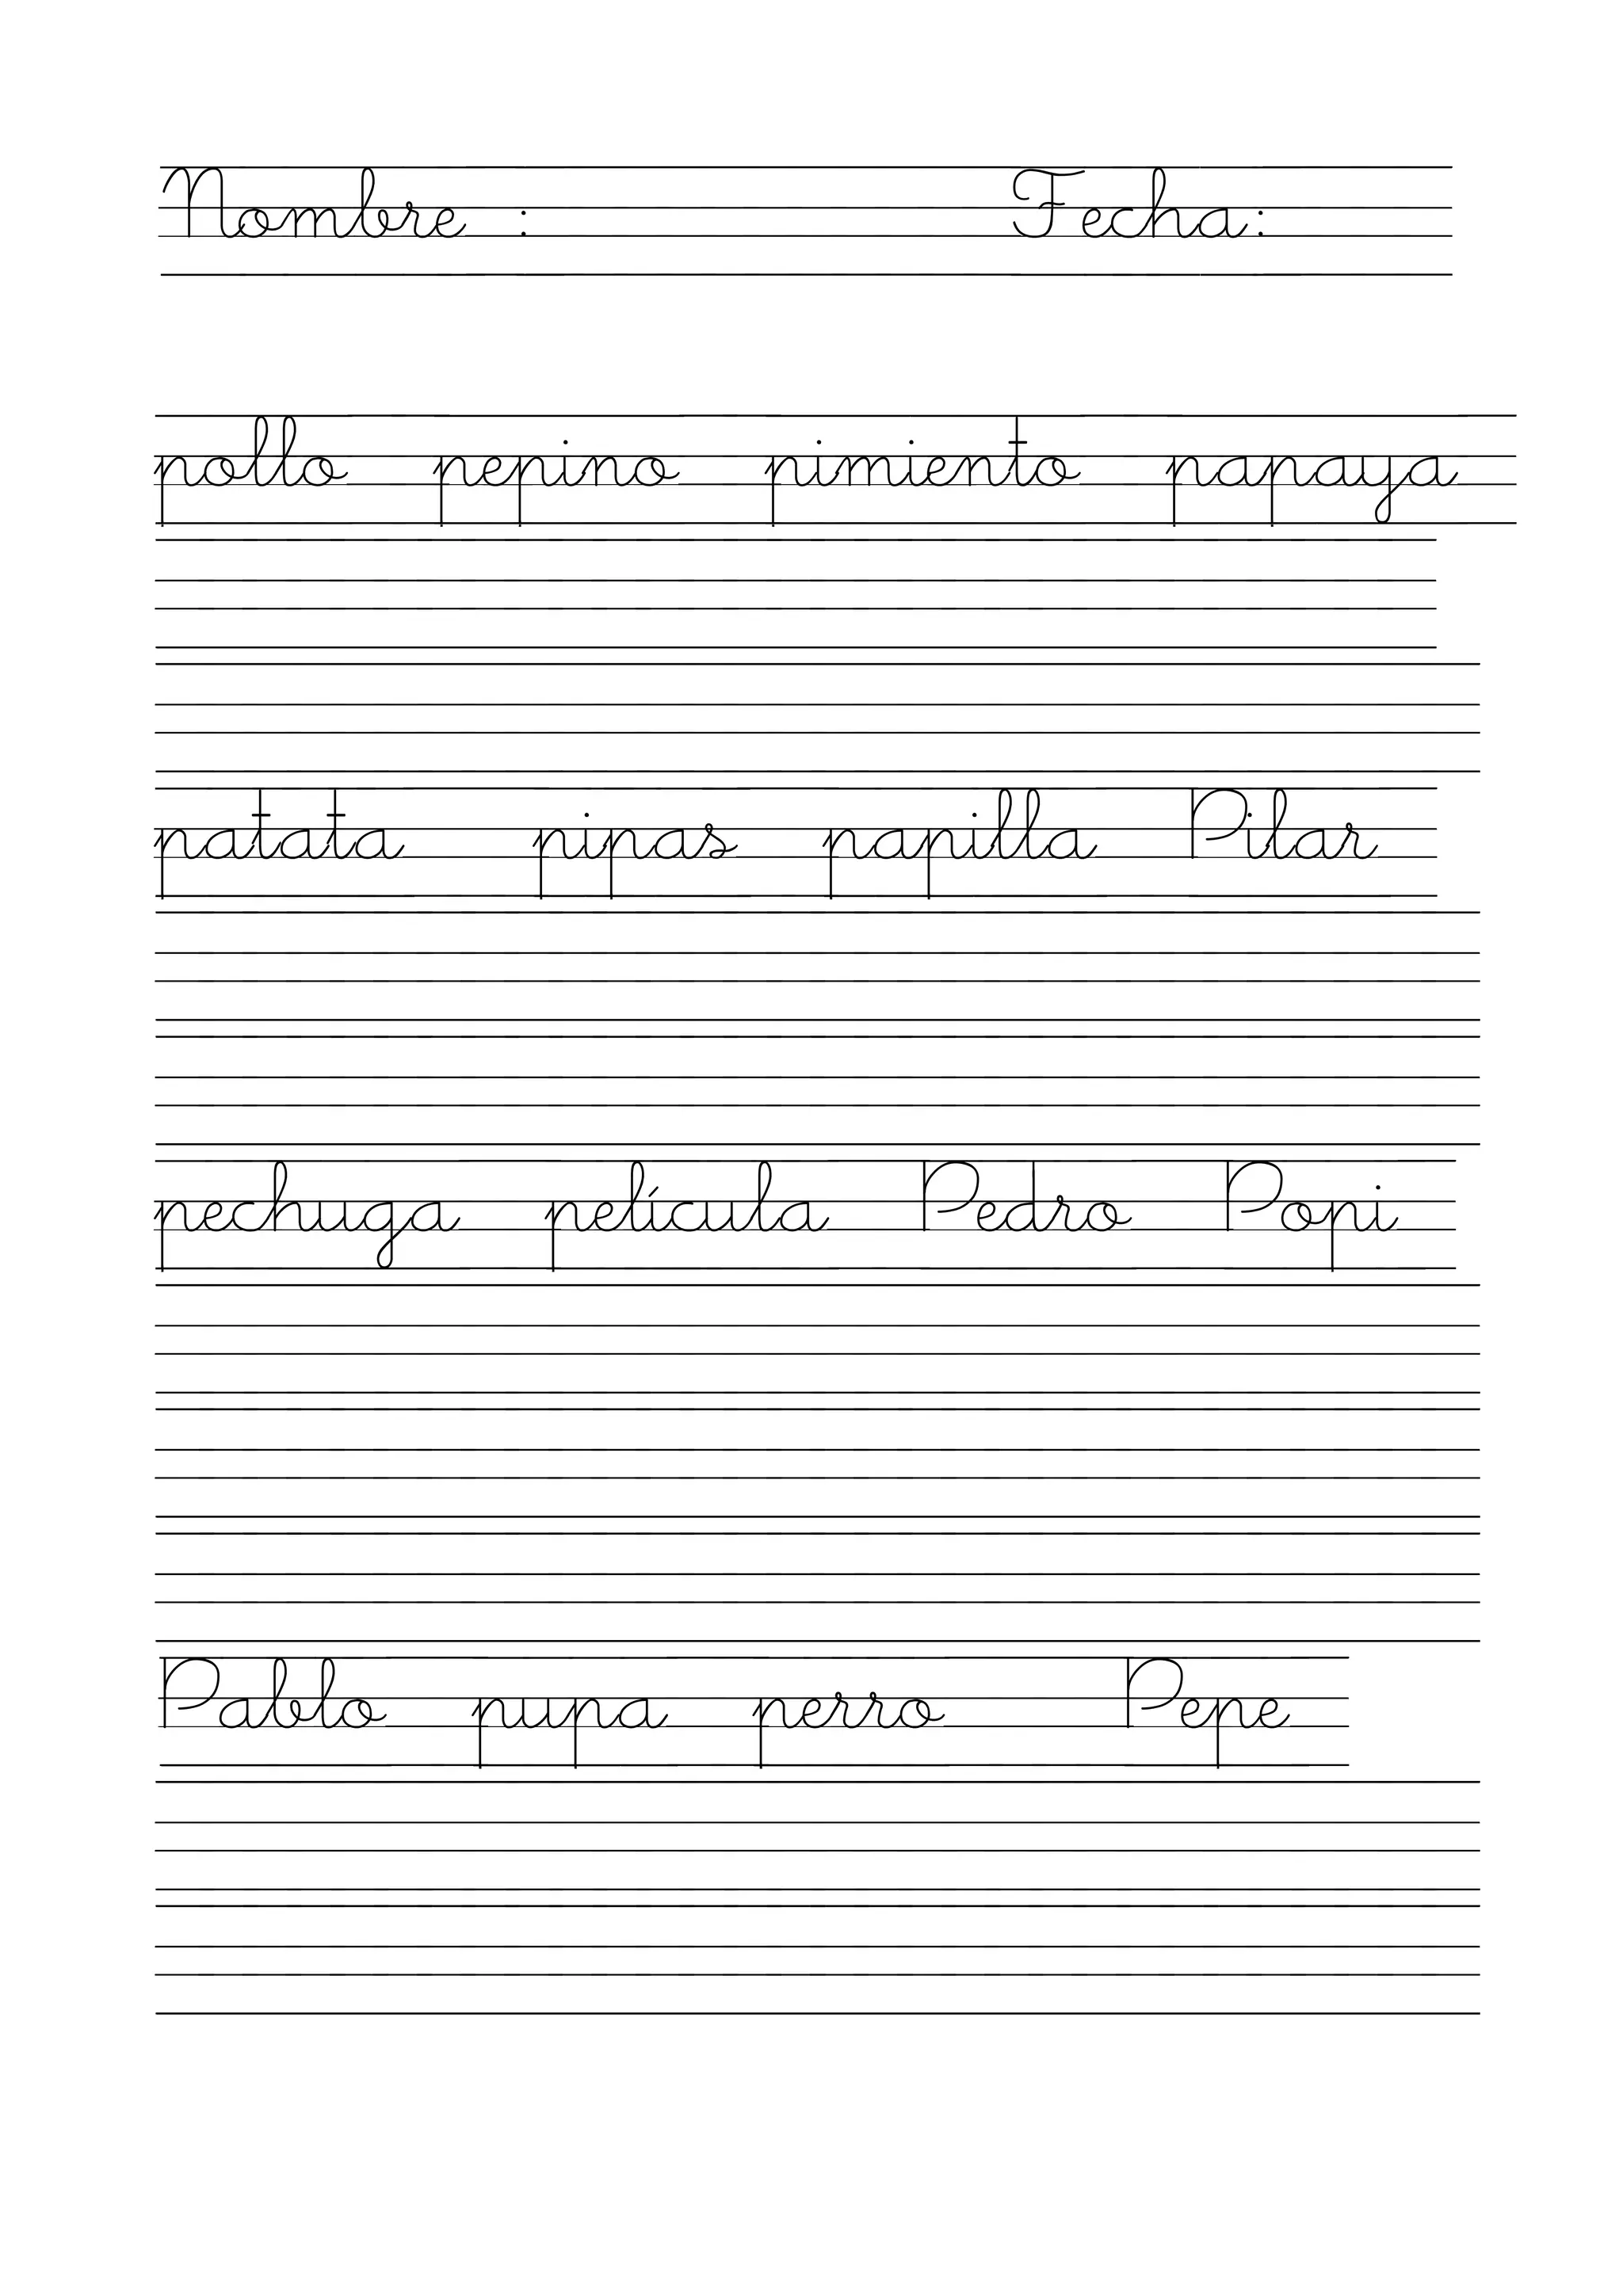 Nombre : Fecha:
pollo pepino pimiento papaya
patata pipas papilla Pilar
pechuga película Pedro Popi
Pablo pupa perro Pepe